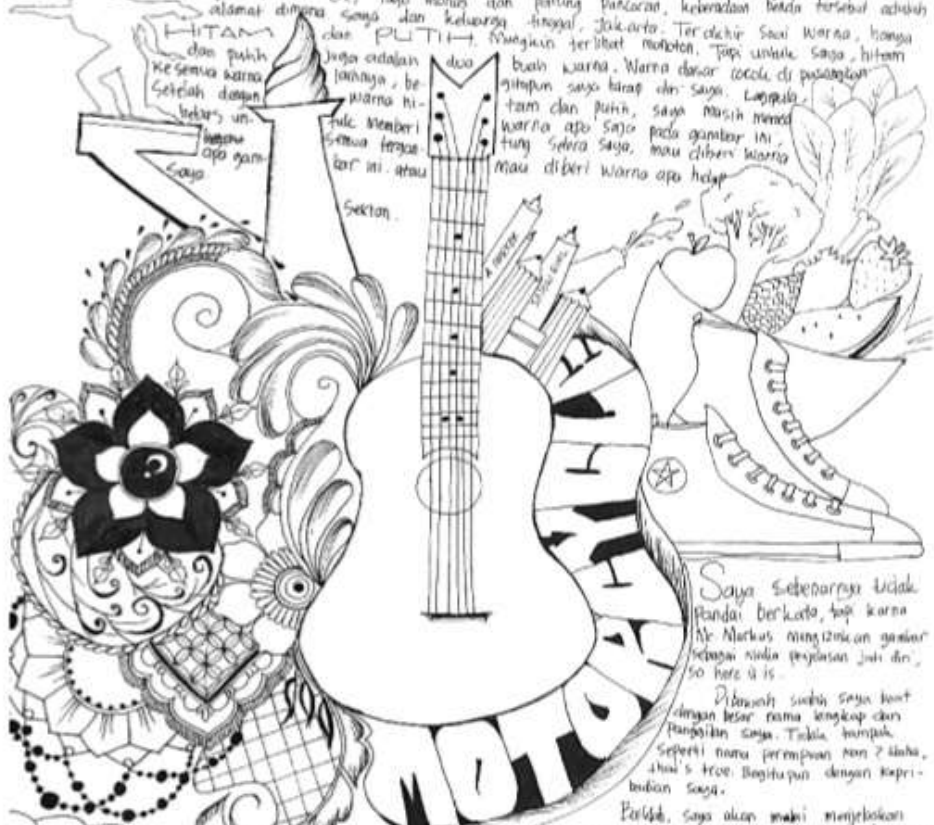 Monas dan patung Pancoran, keberadaan benda tersebut adalah
alamat dimana saya dan keluarga tinggal, Jakarta. Terakhir soal warna, hanya
HITAM dan PUTIH. Mungkin terlihat monoton. Tapi untuk saya, hitam
dan putih juga adalah dua buah warna. Warna dasar cocok di pasangkan
Ke semua warna be gitupun saya terap diri saya. Lagipula
Setelah dengan warna hi- tam dan putih, saya masih
bebas un- tuk Memberi warna apa saja pada gambar ini,
Semua tung Selera Saya, mau diberi Warna
apa gam- bar ini. atau mau diberi warna apa hidup
Saya
Sekian.
MOTO
Saya sebenarnya tidak
pandai berkata, tapi karna
Mr Markus mengizinkan gambar
sebagai media penjelasan jati diri,
so here it is.
Dibawah sudah saya buat
dengan besar nama lengkap dan
Panggilan saya. Tidak tampak
seperti nama perempuan kan? Haha,
that's true. Begitupun dengan kepri-
badian saya.
saya akan menjelaskan